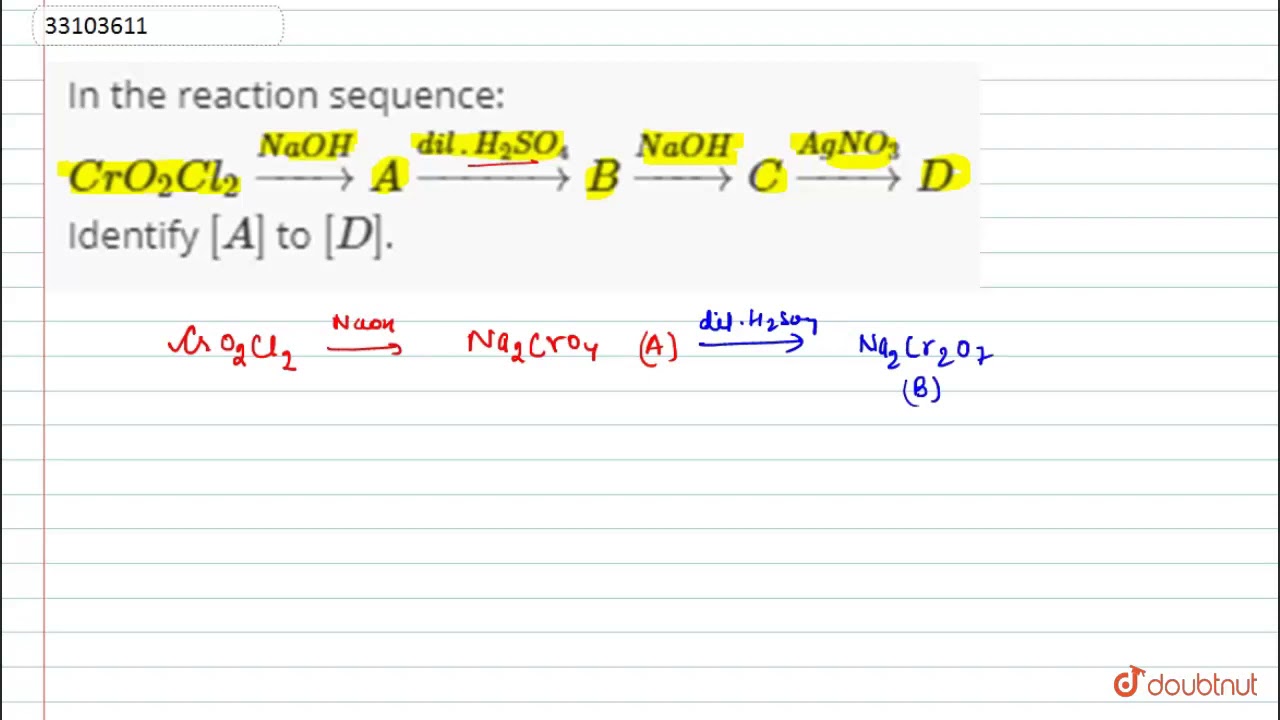 33103611
In the reaction sequence:
CrO₂Cl₂ —NaOH→ A —dil.H₂SO₄→ B —NaOH→ C —AgNO₃→ D
Identify [A] to [D].
CrO₂Cl₂ —NaOH→ Na₂CrO₄ (A) —dil.H₂SO₄→ Na₂Cr₂O₇
(B)
doubtnut